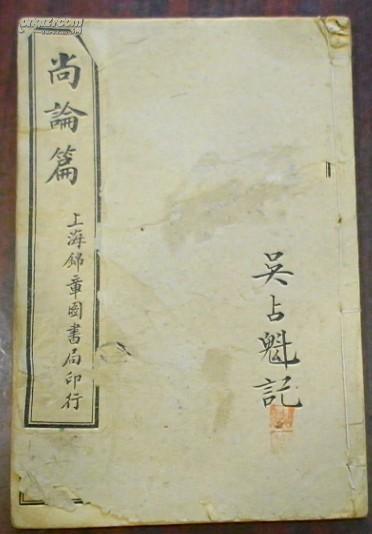 尚論篇
上海錦章圖書局印行
吳占魁記